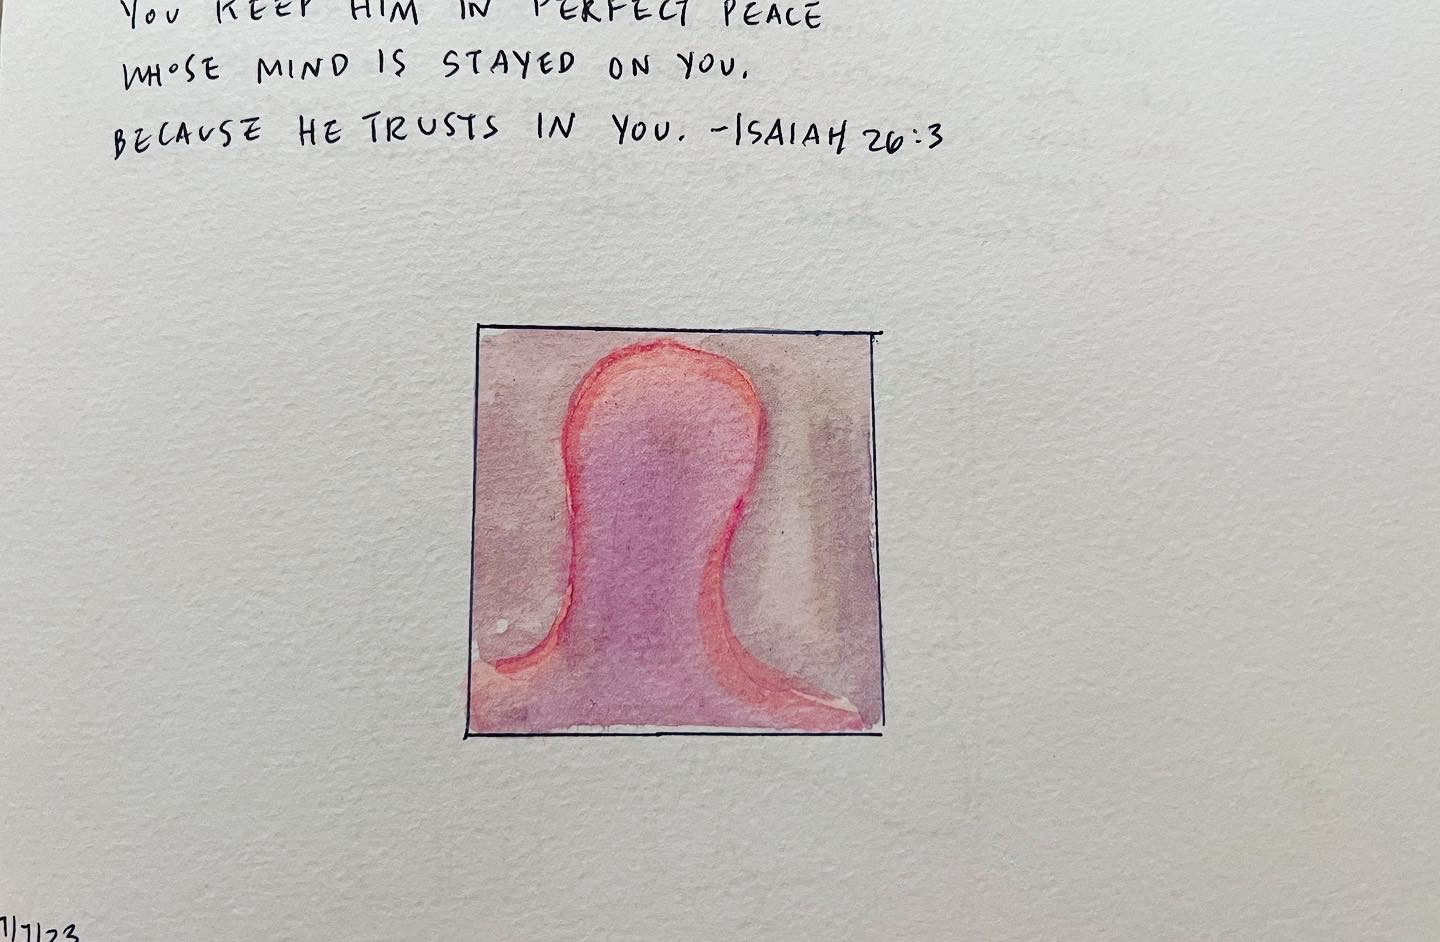 YOU KEEP HIM IN PERFECT PEACE
WHOSE MIND IS STAYED ON YOU.
BECAUSE HE TRUSTS IN YOU. -ISAIAH 26:3
7/7/23